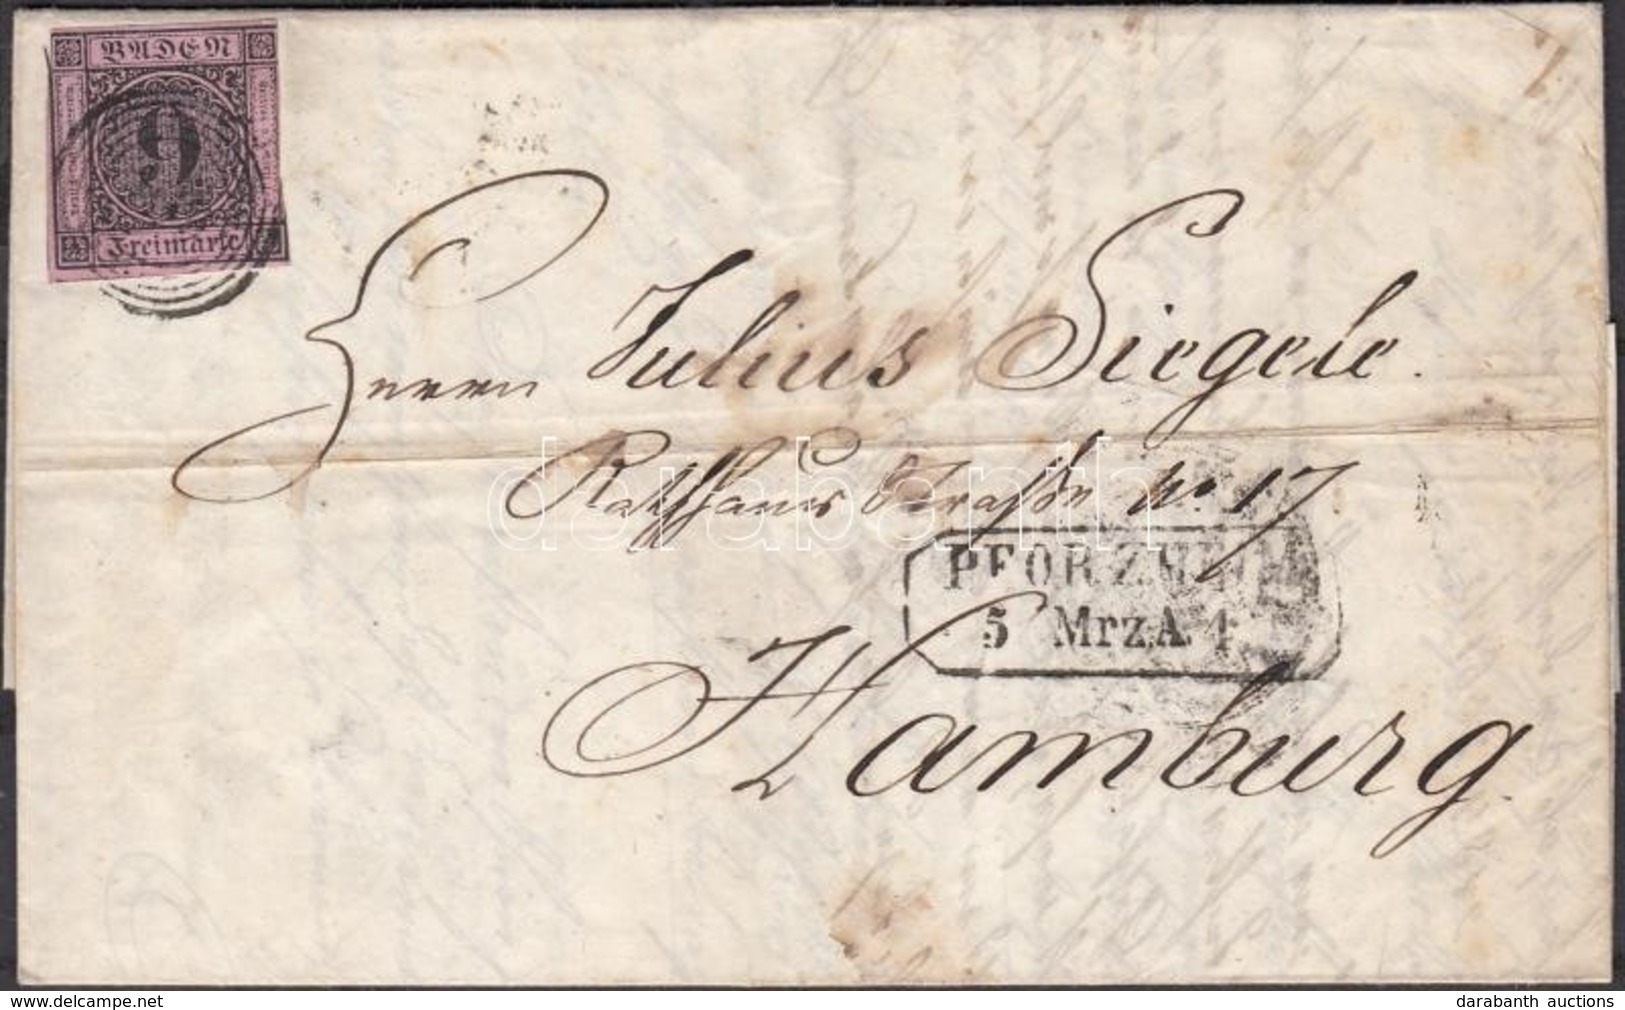 BADEN
9
Freimarke
Herrn Julius Siegele.
Rathhaus Strasse No 17
darabanth
PFORZHEIM
5 Mrz A. 4
Hamburg
©2019 www.delcampe.net
darabanth auctions